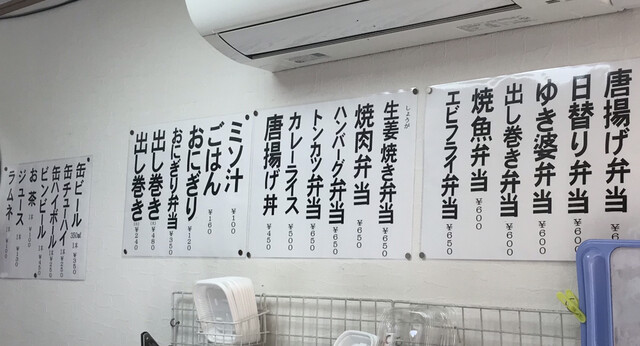 唐揚げ弁当 ¥6
日替り弁当 ¥600
ゆき婆弁当 ¥600
出し巻き弁当 ¥600
焼魚弁当 ¥600
エビフライ弁当 ¥650
しょうが
生姜焼き弁当 ¥650
焼肉弁当 ¥650
ハンバーグ弁当 ¥650
トンカツ弁当 ¥650
カレーライス ¥500
唐揚げ丼 ¥450
ミソ汁 ¥100
ごはん ¥160
おにぎり ¥120
おにぎり弁当 ¥350
出し巻き ¥480
出し巻き ¥240
缶ビール 350ml 1本
缶チューハイ 1本
缶ハイボール 1本
ビンビール 1本
お茶 1本
ジュース 1本
ラムネ 1本